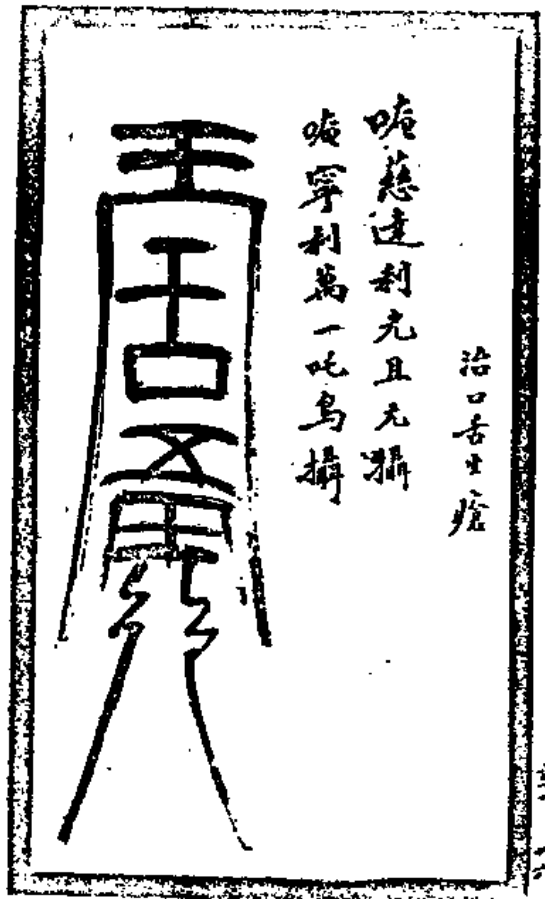 治口舌生瘡
唵慈達利元且元攝
唵寧利萬一吒烏攝